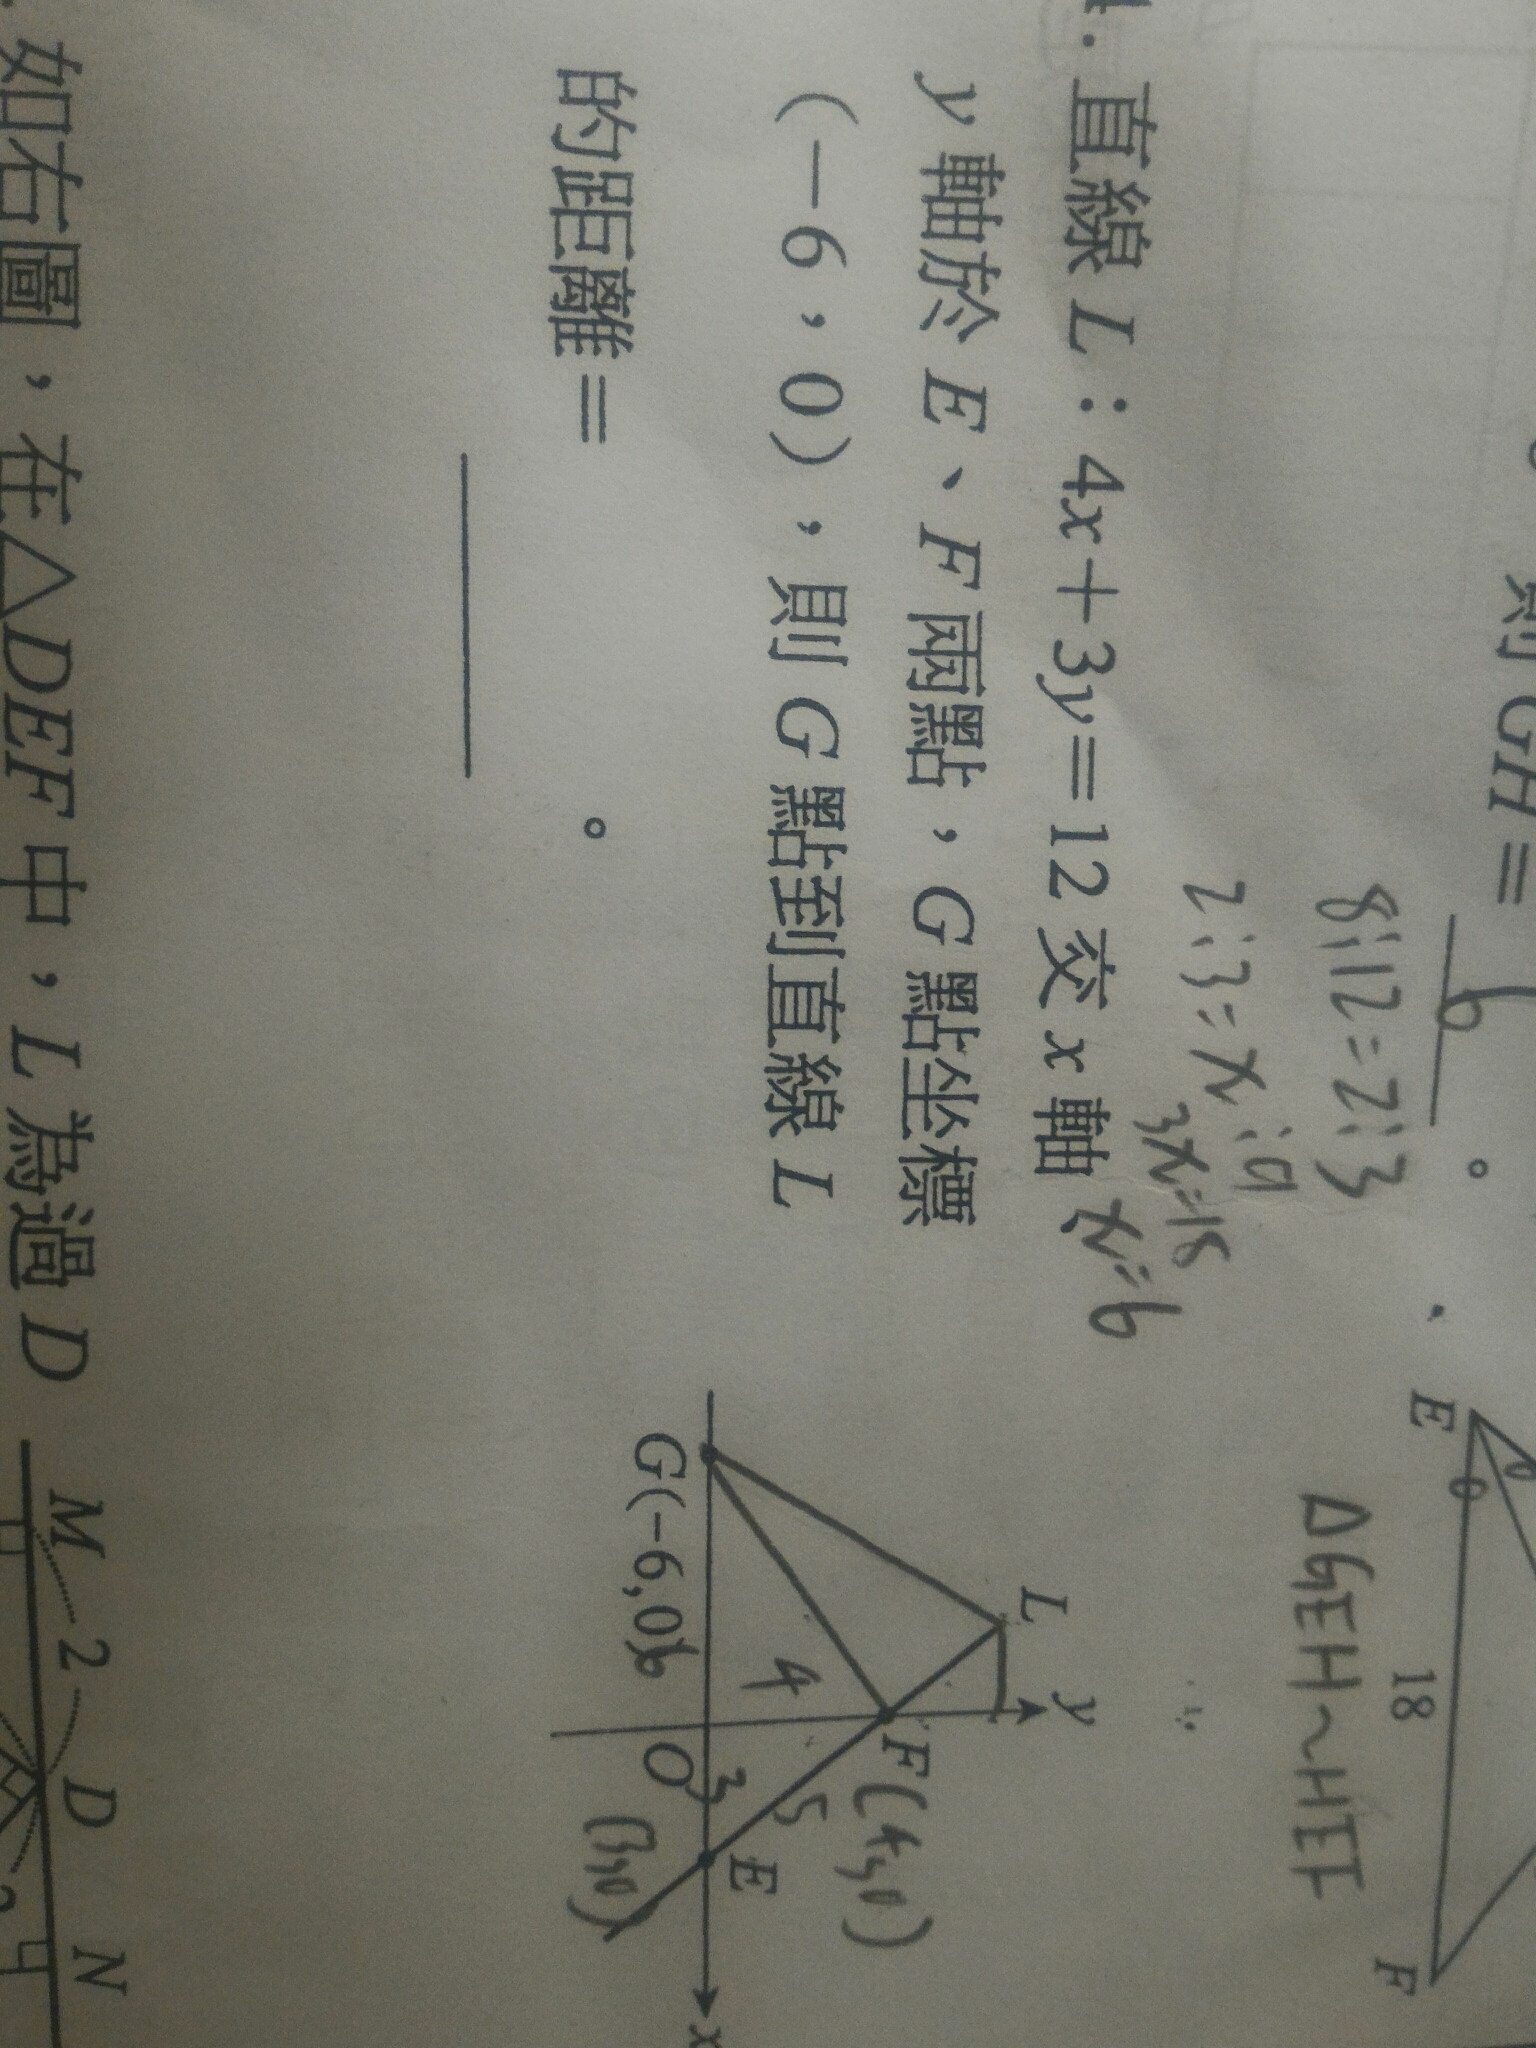 則 GH = 6 。
8:12=2:3
2:3=x:9
3x=18
x=6
E
18
F
△GEH~HEF
直線 L：4x＋3y＝12 交 x 軸
y 軸於 E、F 兩點，G 點坐標
(－6，0)，則 G 點到直線 L
的距離＝
。
L
y
F (4,0)
4
5
G(-6,0)
6
O
3
E
(3,0)
x
如右圖，在△DEF 中，L 為過 D
M
2
D
N